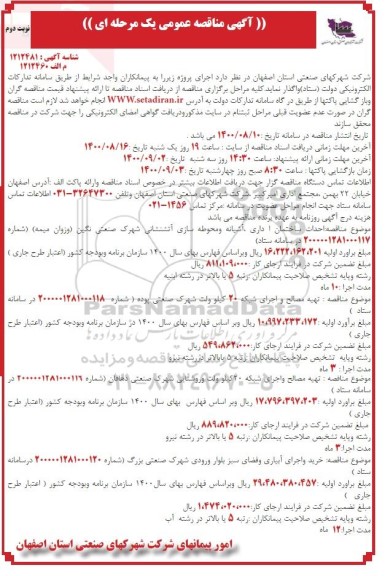 (( آگهی مناقصه عمومی یک مرحله ای ))
نوبت دوم
شناسه آگهی : ۱۲۱۲۴۸۱
م الف ۱۲۱۳۴۶۰
شرکت شهرکهای صنعتی استان اصفهان در نظر دارد اجرای پروژه زیررا به پیمانکاران واجد شرایط از طریق سامانه تدارکات
الکترونیکی دولت (ستاد)واگذار نماید.کلیه مراحل برگزاری مناقصه از دریافت اسناد مناقصه تا ارائه پیشنهاد قیمت مناقصه گران
وباز گشایی پاکتها از طریق در گاه سامانه تدارکات دولت به آدرس WWW.setadiran.ir انجام خواهد شد لازم است مناقصه
گران در صورت عدم عضویت قبلی مراحل ثبتنام در سایت مذکورودریافت گواهی امضای الکترونیکی را جهت شرکت در مناقصه
محقق سازند
تاریخ انتشار مناقصه در سامانه تاریخ: ۱۴۰۰/۰۸/۱۰ می باشد .
آخرین مهلت زمانی دریافت اسناد مناقصه از سایت : ساعت ۱۹ روز یک شنبه تاریخ ۱۴۰۰/۰۸/۱۶
آخرین مهلت زمانی ارائه پیشنهاد: ساعت ۱۴:۳۰ روز سه شنبه تاریخ ۱۴۰۰/۰۹/۰۲
زمان بازگشایی پاکتها : ساعت ۸:۳۰ صبح روز چهارشنبه تاریخ: ۱۴۰۰/۰۹/۰۳
اطلاعات تماس دستگاه مناقصه گزار جهت دریافت اطلاعات بیشتر در خصوص اسناد مناقصه وارائه پاکت الف :آدرس اصفهان
خیابان ۲۲ بهمن ،مجتمع اداری امیرکبیر شرکت شهرکهای صنعتی استان اصفهان وتلفن ۳۲۶۴۷۳۰۰-۰۳۱ اطلاعات تماس
سامانه ستاد جهت انجام مراحل عضویت درسامانه :مرکز تماس ۱۴۵۶-۰۲۱
هزینه درج آگهی روزنامه به عهده برنده مناقصه می باشد
موضوع مناقصه:احداث ساختمان ا داری ،آشیانه ومحوطه سازی آتشنشانی شهرک صنعتی نگین (وزوان میمه) (شماره
۲۰۰۰۰۰۱۲۸۱۰۰۰۱۱۷ در سامانه ستاد)
مبلغ برآورد اولیه ۱۶,۲۲۴,۱۶۲,۴۰۱ ریال وبر اساس فهارس بهای سال ۱۴۰۰ سازمان برنامه وبودجه کشور (اعتبار طرح جاری )
مبلغ تضمین شرکت در فرایند ارجاع کار: ۸۱۱,۰۹۰,۰۰۰ ریال
رشته وپایه تشخیص صلاحیت پیمانکاران :رتبه ۵ یا بالاتر در رشته ابنیه
مدت اجرا: ۱۰ ماه
موضوع مناقصه : تهیه مصالح و اجرای شبکه ۲۰ کیلو ولت شهرک صنعتی بوده ( شماره ۲۰۰۰۰۰۱۲۸۱۰۰۰۱۱۸ در سامانه
ستاد )
مبلغ برآورد اولیه :۱۰,۹۹۷,۲۳۳,۱۷۴ ریال وبر اساس فهارس بهای سال ۱۴۰۰ سازمان برنامه وبودجه کشور (اعتبار طرح
جاری )
مبلغ تضمین شرکت در فرایند ارجاع کار: ۵۴۹,۸۶۴,۰۰۰ ریال
رشته وپایه تشخیص صلاحیت پیمانکاران :رتبه ۵ یا بالاتر در رشته نیرو
مدت اجرا : ۳ ماه
موضوع مناقصه : تهیه مصالح واجرای شبکه ۲۰ کیلو ولت وروشنایی شهرک صنعتی دهاقان (شماره ۲۰۰۰۰۰۱۲۸۱۰۰۰۱۱۶ در
سامانه ستاد )
مبلغ برآورد اولیه :۱۷,۷۹۶,۳۹۷,۴۰۳ ریال وبر اساس فهارس بهای سال ۱۴۰۰ سازمان برنامه وبودجه کشور (اعتبار طرح
جاری )
مبلغ تضمین شرکت در فرایند ارجاع کار: ۸۸۹,۸۲۰,۰۰۰ ریال
رشته وپایه تشخیص صلاحیت پیمانکاران :رتبه ۵ یا بالاتر در رشته نیرو
مدت اجرا :۳ ماه
موضوع مناقصه: خرید واجرای آبیاری وفضای سبز بلوار ورودی شهرک صنعتی بزرگ (شماره ۲۰۰۰۰۰۱۲۸۱۰۰۰۱۲۰ درسامانه
ستاد )
مبلغ برآورد اولیه :۲۹,۴۸۰,۳۸۰,۴۵۷ ریال وبر اساس فهارس بهای سال ۱۴۰۰ سازمان برنامه وبودجه کشور ( اعتبار طرح
جاری )
مبلغ تضمین شرکت در فرایند ارجاع کار: ۱,۴۷۴,۰۲۰,۰۰۰ ریال
رشته وپایه تشخیص صلاحیت پیمانکاران :رتبه ۵ یا بالاتر در رشته آب
مدت اجرا:۱۲ ماه
امور پیمانهای شرکت شهرکهای صنعتی استان اصفهان